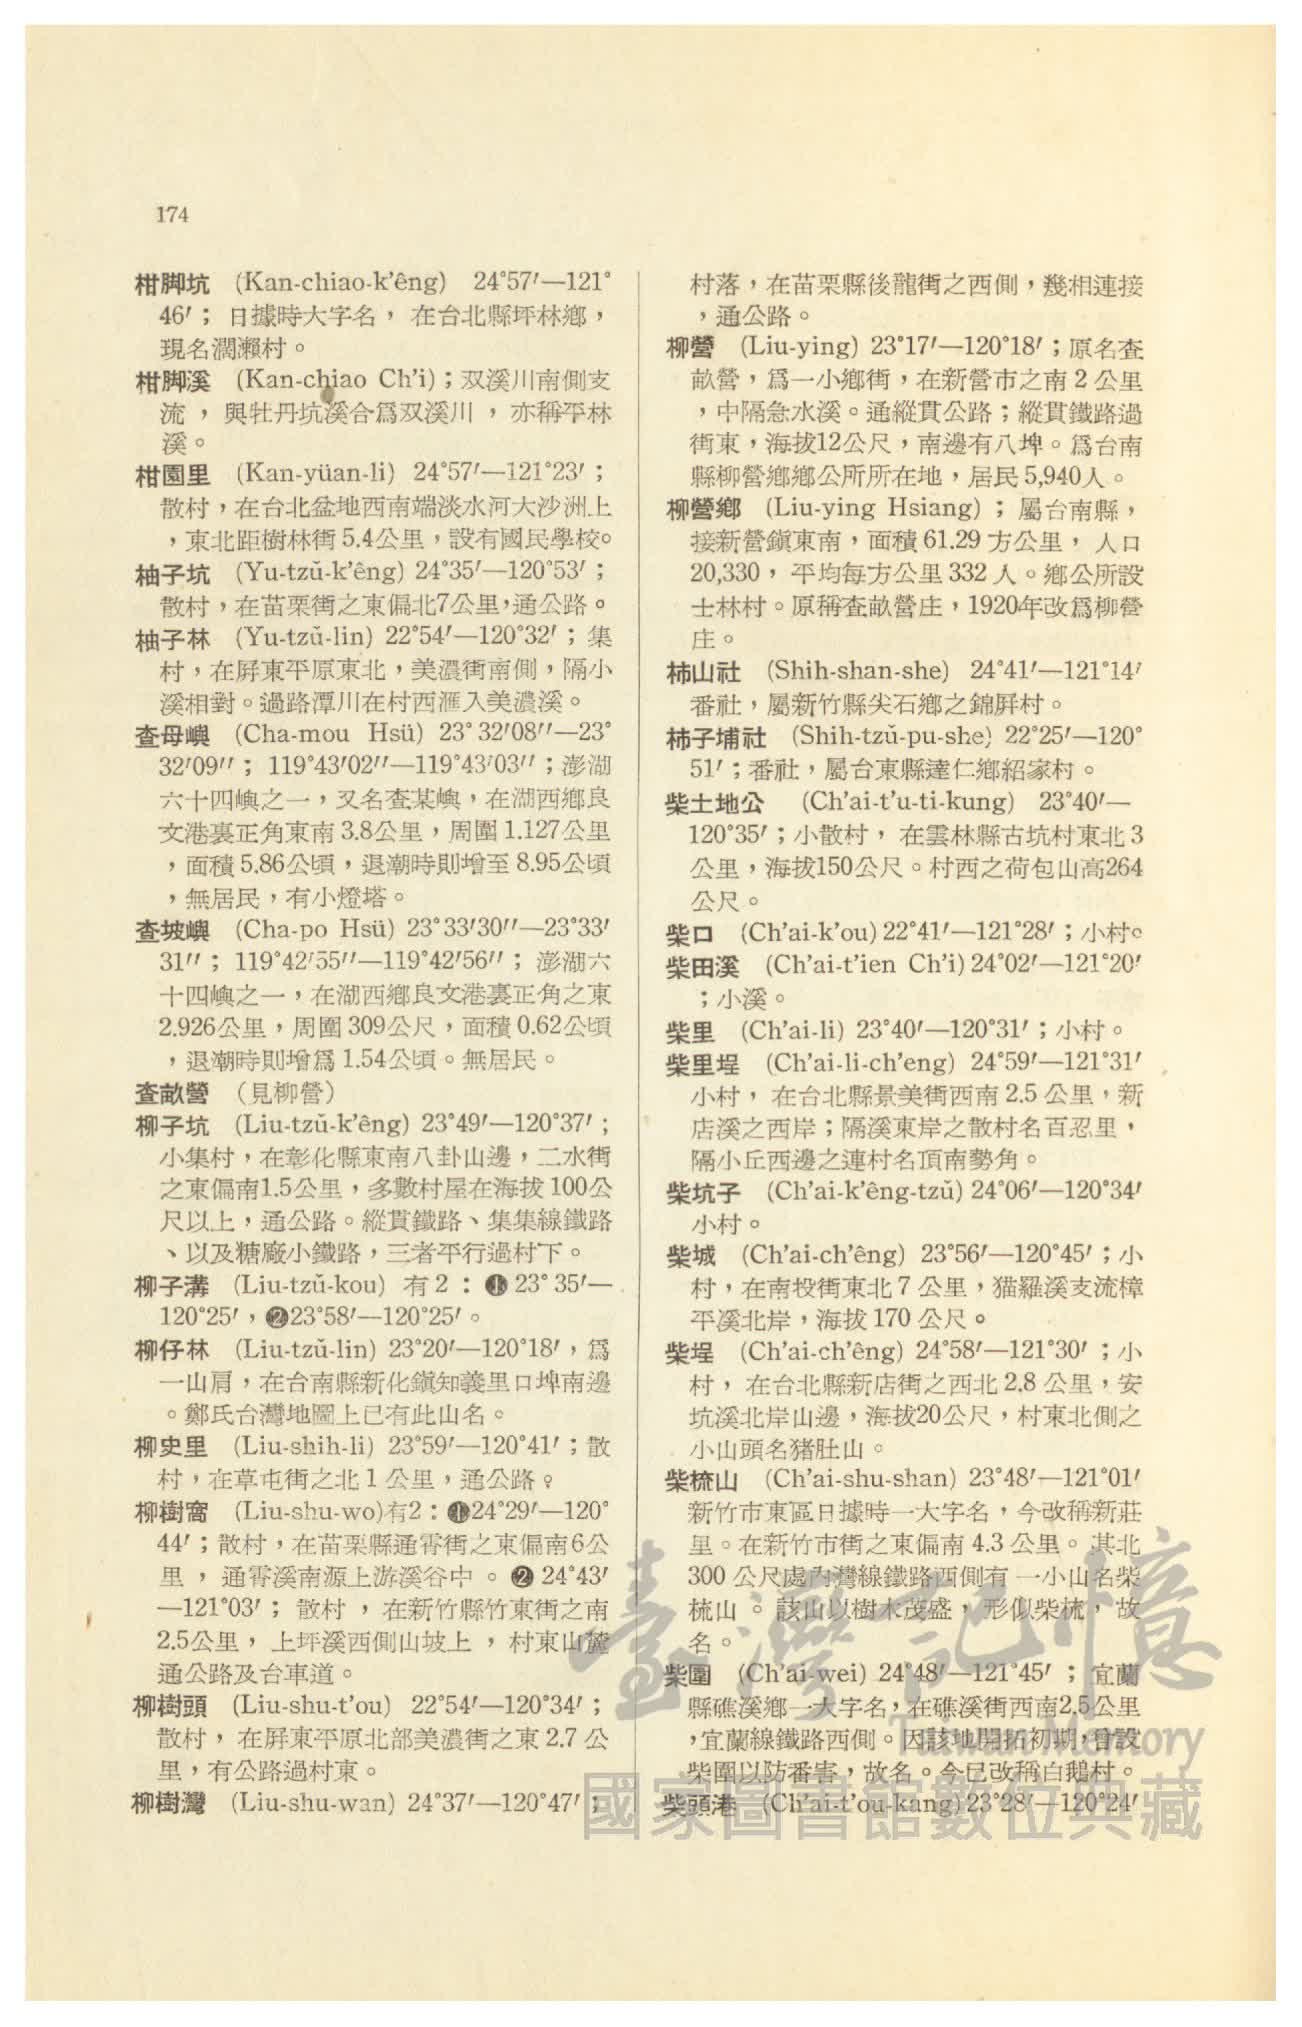 174
柑脚坑 (Kan-chiao-k'êng) 24°57′—121°
46′；日據時大字名，在台北縣坪林鄉，
現名濶瀨村。
柑脚溪 (Kan-chiao Ch'i)；双溪川南側支
流，與牡丹坑溪合爲双溪川，亦稱平林
溪。
柑園里 (Kan-yüan-li) 24°57′—121°23′；
散村，在台北盆地西南端淡水河大沙洲上
，東北距樹林街5.4公里，設有國民學校。
柚子坑 (Yu-tzŭ-k'êng) 24°35′—120°53′；
散村，在苗栗街之東偏北7公里，通公路。
柚子林 (Yu-tzŭ-lin) 22°54′—120°32′；集
村，在屛東平原東北，美濃街南側，隔小
溪相對。過路潭川在村西滙入美濃溪。
查母嶼 (Cha-mou Hsü) 23°32′08″—23°
32′09″；119°43′02″—119°43′03″；澎湖
六十四嶼之一，又名查某嶼，在湖西鄉良
文港裏正角東南3.8公里，周圍1.127公里
，面積5.86公頃，退潮時則增至8.95公頃
，無居民，有小燈塔。
查坡嶼 (Cha-po Hsü) 23°33′30″—23°33′
31″；119°42′55″—119°42′56″；澎湖六
十四嶼之一，在湖西鄉良文港裏正角之東
2.926公里，周圍309公尺，面積0.62公頃
，退潮時則增爲1.54公頃。無居民。
查畝營 （見柳營）
柳子坑 (Liu-tzŭ-k'êng) 23°49′—120°37′；
小集村，在彰化縣東南八卦山邊，二水街
之東偏南1.5公里，多數村屋在海拔100公
尺以上，通公路。縱貫鐵路、集集線鐵路
、以及糖廠小鐵路，三者平行過村下。
柳子溝 (Liu-tzŭ-kou) 有2：❶23°35′—
120°25′，❷23°58′—120°25′。
柳仔林 (Liu-tzŭ-lin) 23°20′—120°18′，爲
一山肩，在台南縣新化鎭知義里口埤南邊
。鄭氏台灣地圖上已有此山名。
柳史里 (Liu-shih-li) 23°59′—120°41′；散
村，在草屯街之北1公里，通公路。
柳樹窩 (Liu-shu-wo)有2：❶24°29′—120°
44′；散村，在苗栗縣通霄街之東偏南6公
里，通霄溪南源上游溪谷中。❷24°43′
—121°03′；散村，在新竹縣竹東街之南
2.5公里，上坪溪西側山坡上，村東山麓
通公路及台車道。
柳樹頭 (Liu-shu-t'ou) 22°54′—120°34′；
散村，在屛東平原北部美濃街之東2.7公
里，有公路過村東。
柳樹灣 (Liu-shu-wan) 24°37′—120°47′；
村落，在苗栗縣後龍街之西側，幾相連接
，通公路。
柳營 (Liu-ying) 23°17′—120°18′；原名查
畝營，爲一小鄉街，在新營市之南2公里
，中隔急水溪。通縱貫公路；縱貫鐵路過
街東，海拔12公尺，南邊有八埤。爲台南
縣柳營鄉鄉公所所在地，居民5,940人。
柳營鄉 (Liu-ying Hsiang)；屬台南縣，
接新營鎭東南，面積61.29方公里，人口
20,330，平均每方公里332人。鄉公所設
士林村。原稱查畝營庄，1920年改爲柳營
庄。
柿山社 (Shih-shan-she) 24°41′—121°14′
番社，屬新竹縣尖石鄉之錦屛村。
柿子埔社 (Shih-tzŭ-pu-she) 22°25′—120°
51′；番社，屬台東縣達仁鄉紹家村。
柴土地公 (Ch'ai-t'u-ti-kung) 23°40′—
120°35′；小散村，在雲林縣古坑村東北3
公里，海拔150公尺。村西之荷包山高264
公尺。
柴口 (Ch'ai-k'ou) 22°41′—121°28′；小村。
柴田溪 (Ch'ai-t'ien Ch'i) 24°02′—121°20′
；小溪。
柴里 (Ch'ai-li) 23°40′—120°31′；小村。
柴里埕 (Ch'ai-li-ch'eng) 24°59′—121°31′
小村，在台北縣景美街西南2.5公里，新
店溪之西岸；隔溪東岸之散村名百忍里，
隔小丘西邊之連村名頂南勢角。
柴坑子 (Ch'ai-k'êng-tzŭ) 24°06′—120°34′
小村。
柴城 (Ch'ai-ch'êng) 23°56′—120°45′；小
村，在南投街東北7公里，猫羅溪支流樟
平溪北岸，海拔170公尺。
柴埕 (Ch'ai-ch'êng) 24°58′—121°30′；小
村，在台北縣新店街之西北2.8公里，安
坑溪北岸山邊，海拔20公尺，村東北側之
小山頭名猪肚山。
柴梳山 (Ch'ai-shu-shan) 23°48′—121°01′
新竹市東區日據時一大字名，今改稱新莊
里。在新竹市街之東偏南4.3公里。其北
300公尺處內灣線鐵路西側有一小山名柴
梳山。該山以樹木茂盛，形似柴梳，故
名。
柴圍 (Ch'ai-wei) 24°48′—121°45′；宜蘭
縣礁溪鄉一大字名，在礁溪街西南2.5公里
，宜蘭線鐵路西側。因該地開拓初期，曾設
柴圍以防番害，故名。今已改稱白鵝村。
柴頭港 (Ch'ai-t'ou-kang) 23°28′—120°24′
臺灣記憶
Taiwan Memory
國家圖書館數位典藏